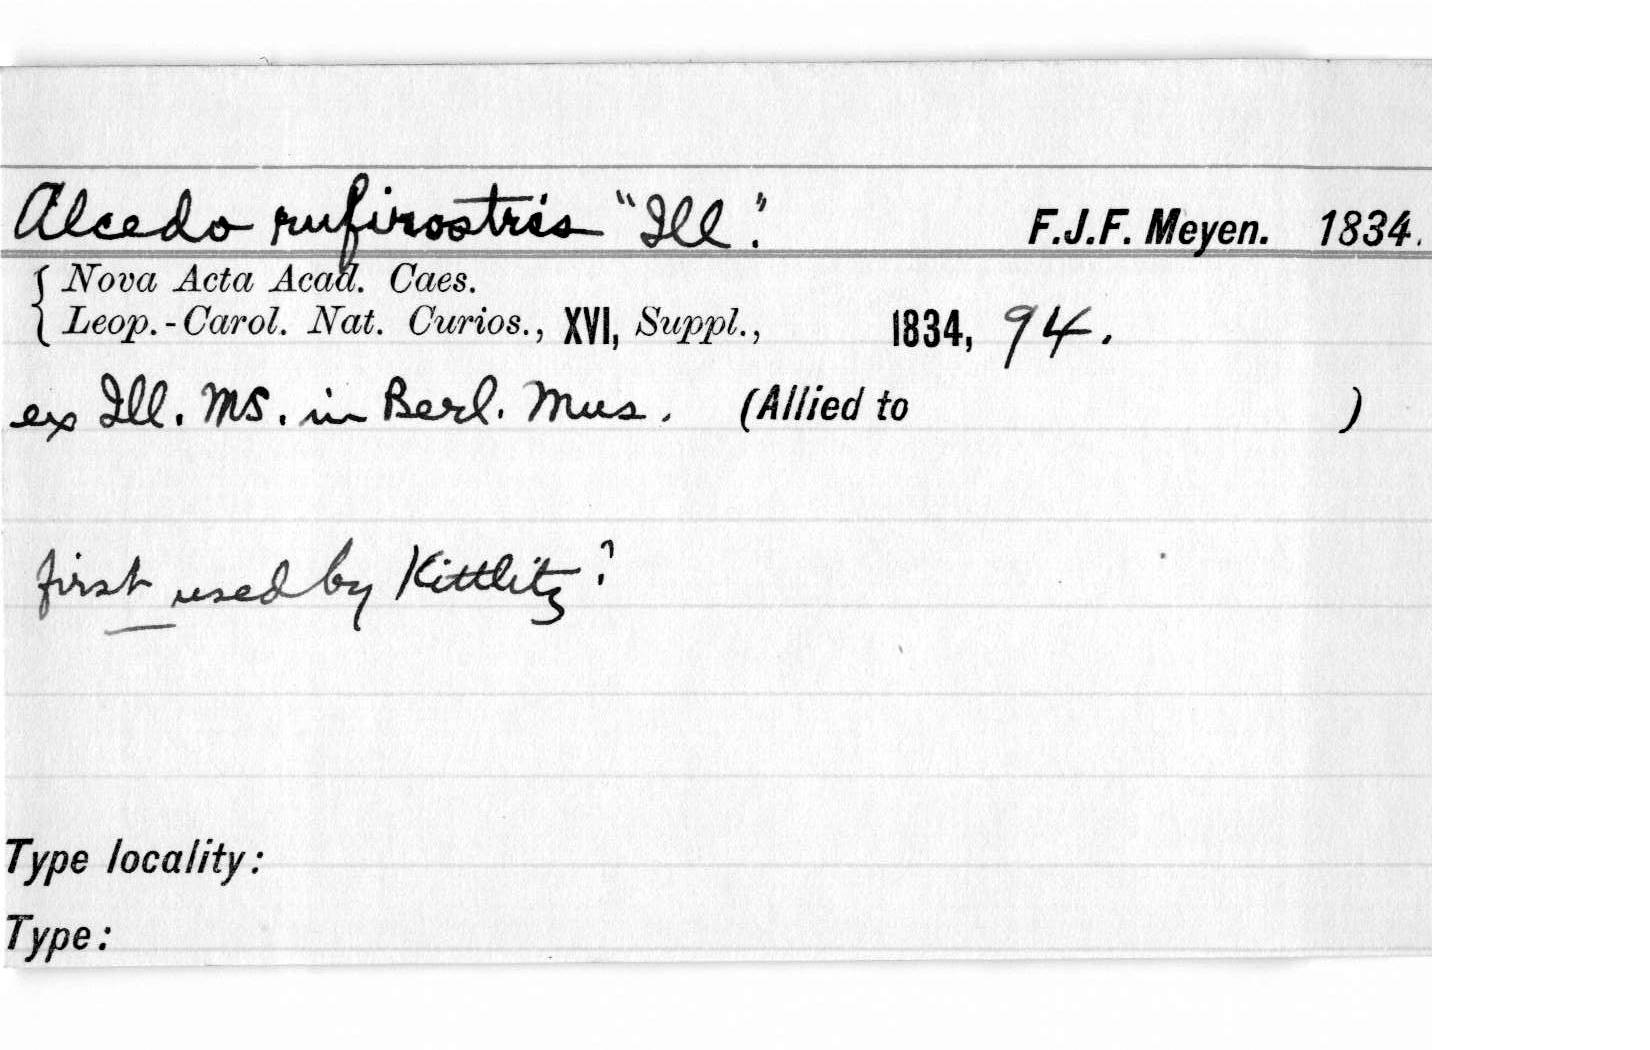 Alcedo rufirostris "Ill". F.J.F. Meyen. 1834.
Nova Acta Acad. Caes.
Leop.-Carol. Nat. Curios., XVI, Suppl., 1834, 94.
ex Ill. MS. in Berl. Mus. (Allied to )
first used by Kittlitz?
Type locality:
Type: